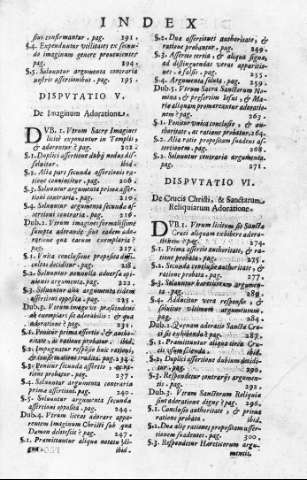 INDEX
sius confirmantur. pag. 191.
§.4. Expenduntur vtilitates ex secundo imaginum genere prouenientes pag. 194.
§.5. Soluuntur argumenta contraria nostris assertionibus. pag. 195.
DISPVTATIO V.
De Imaginum Adoratione.
DVB. 1. Vtrum Sacræ Imagines licitè exponantur in Templis, & adorentur? pag. 202.
§.1. Duplici assertione dubij nodus dissoluitur. ibid.
§.2. Alia pars secundæ assertionis ratione communitur. pag. 208.
§.3. Soluuntur argumenta primæ assertioni contraria. pag. 210.
§.4. Soluuntur argumenta secundæ assertioni contraria. pag. 216.
Dub. 2. Vtrum imagines formalissimè sumptæ adorandæ sint eadem adoratione qua earum exemplaria? pag. 217.
§.1. Vnica conclusione proposita difficultas deciditur. pag.
§.2. Soluuntur nonnulla aduersa assertionis argumenta. pag. 222.
§.3. Soluuntur alia argumenta eidem assertioni opposita. pag. 225.
Dub. 3. Vtrum imagines præscindendo ab exemplari sit adorabilis? & qua adoratione? pag. 231.
§.1. Ponitur prima assertio, & auctoritate, ac ratione probatur. ibid.
§.2. Impugnatur responsio huic rationi, & simul materia roditur. pag. 234
§.3. Ponitur secunda assertio, ac ratione probatur. pag. 237.
§.4. Soluuntur argumenta contraria primæ assertioni. pag. 240.
§.5. Soluuntur argumenta secundæ assertioni opposita. pag. 244.
Dub. 4. Vtrum liceat adorare apparentem Imaginem Christi sub qua Dæmon delitescit? pag. 247.
§.1. Præmittuntur aliqua notatu digna. ibid.
§.2. Duæ assertiones authoritate, & ratione probantur. pag. 249.
§.3. Assertio tertia, & aliqua signa, ad distinguendas veras apparitiones à falsis. pag. 255.
§.4. Soluuntur argumenta. pag. 259.
Dub. 5. Vtrum Sacra Sanctorum Nomina, & præsertim Iesus, & Maria aliquam promereantur adorationem? pag. 261.
§.1. Ponitur vnica conclusio, & authoritate, ac ratione probatur. 264.
§.2. Alia ratio propositum suadens asseritur. pag. 268.
§.3. Soluuntur contraria argumenta. pag. 271.
DISPVTATIO VI.
De Crucis Christi, & Sanctarum Reliquiarum Adoratione.
DVB. 1. Vtrum licitum sit Sanctæ Cruci aliquam exhibere adorationem? pag. 274.
§.1. Prima assertio authoritate, & ratione probata. pag. 275.
§.2. Secunda conclusio authoritate, & ratione probata. pag. 277.
§.3. Soluuntur hæreticorum argumenta. pag. 281.
§.4. Adducitur vera responsio, & soluitur vltimum argumentum. pag. 284.
Dub. 2. Quænam adoratio Sanctæ Crucis exhibenda? pag. 289.
§.1. Præmittuntur aliqua circa Crucis essentialia. ibid.
§.2. Duplici assertione dubium deciditur. pag. 290.
§.3. Respondetur contrarijs argumentis. pag. 291.
Dub. 3. Vtrum Sanctorum Reliquiæ sint adoratione dignæ? pag. 296.
§.1. Conclusio authoritate, & prima ratione probata. ibid.
§.2. Duæ aliæ rationes propositam assertionem suadentes. pag. 300.
§.3. Respondetur Hæreticorum argumentis.